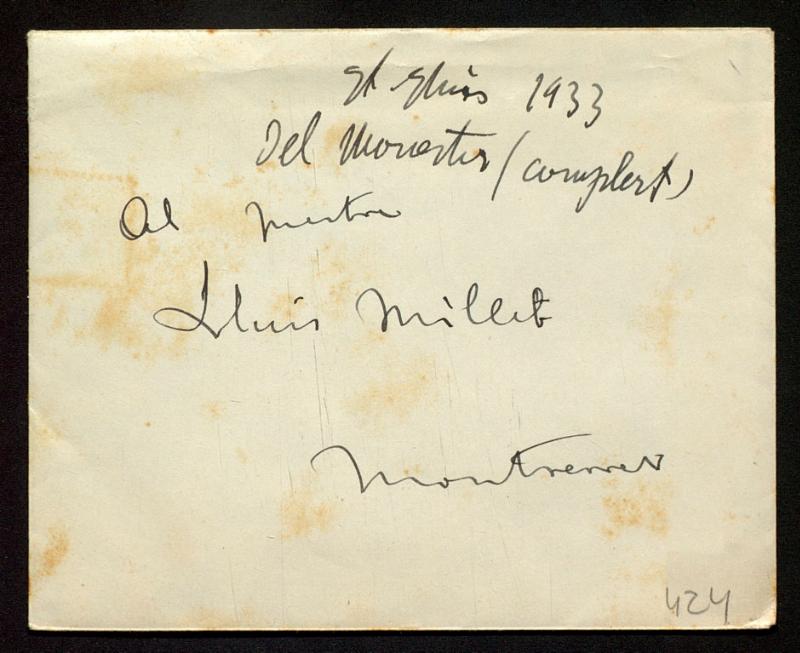 St Lluis 1933
Del Monestir (complert)
Al mestre
Lluis Millet
Montserrat
424